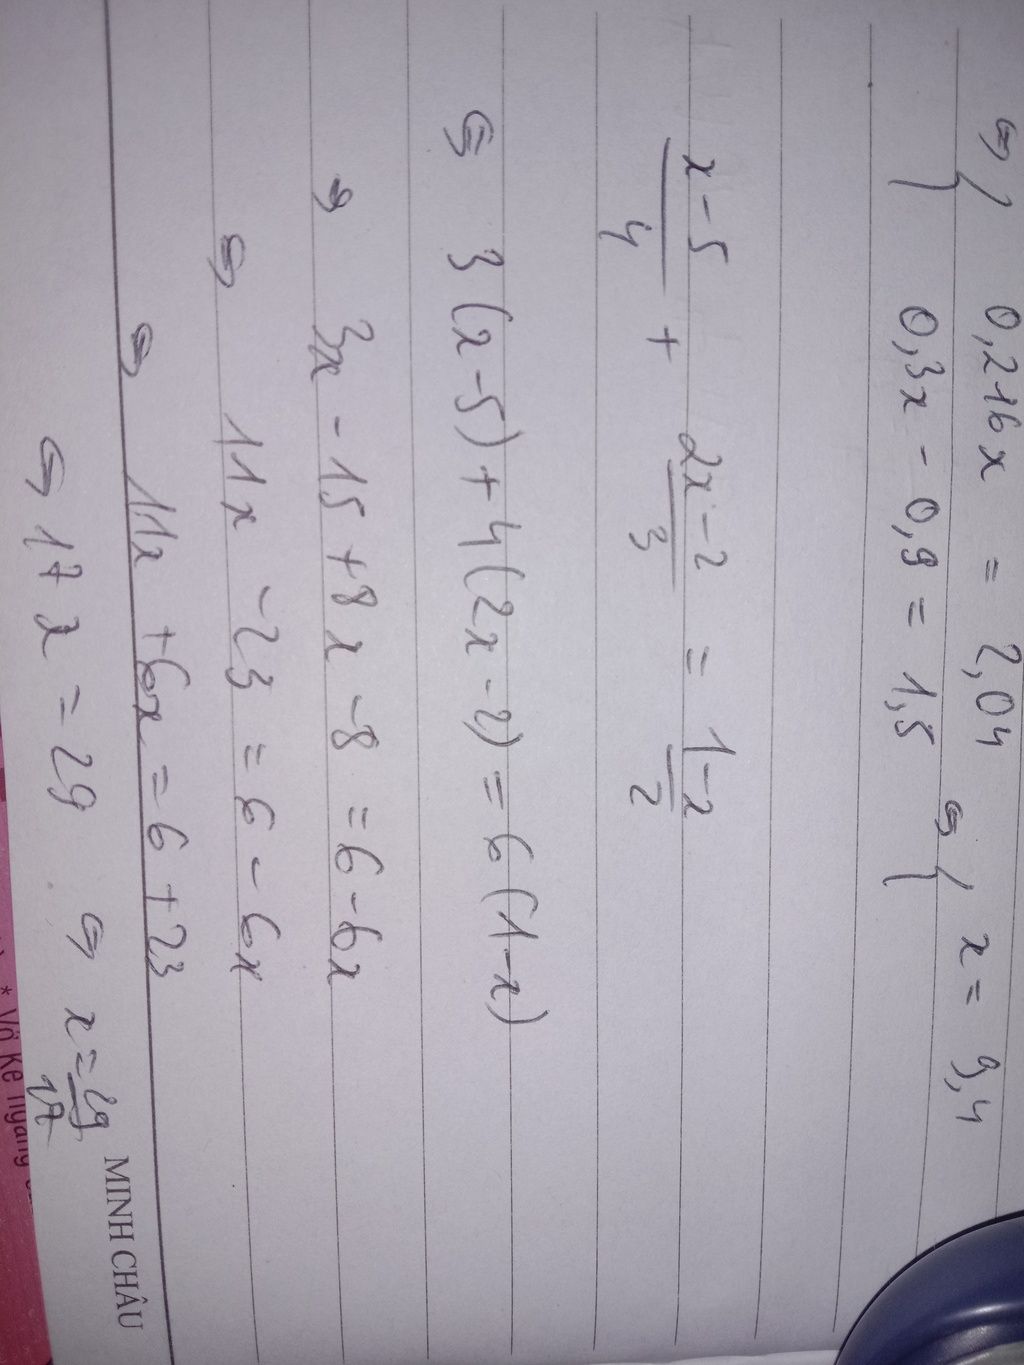 ⇔ { 0,216x = 2,04 ⇔ { x = 9,4
0,3x - 0,9 = 1,5
x-5/4 + 2x-2/3 = 1-x/2
⇔ 3(x-5) + 4(2x-2) = 6(1-x)
⇔ 3x - 15 + 8x - 8 = 6 - 6x
⇔ 11x - 23 = 6 - 6x
⇔ 11x + 6x = 6 + 23
⇔ 17x = 29 ⇔ x = 29/17
MINH CHÂU
* Vở kẻ ngang